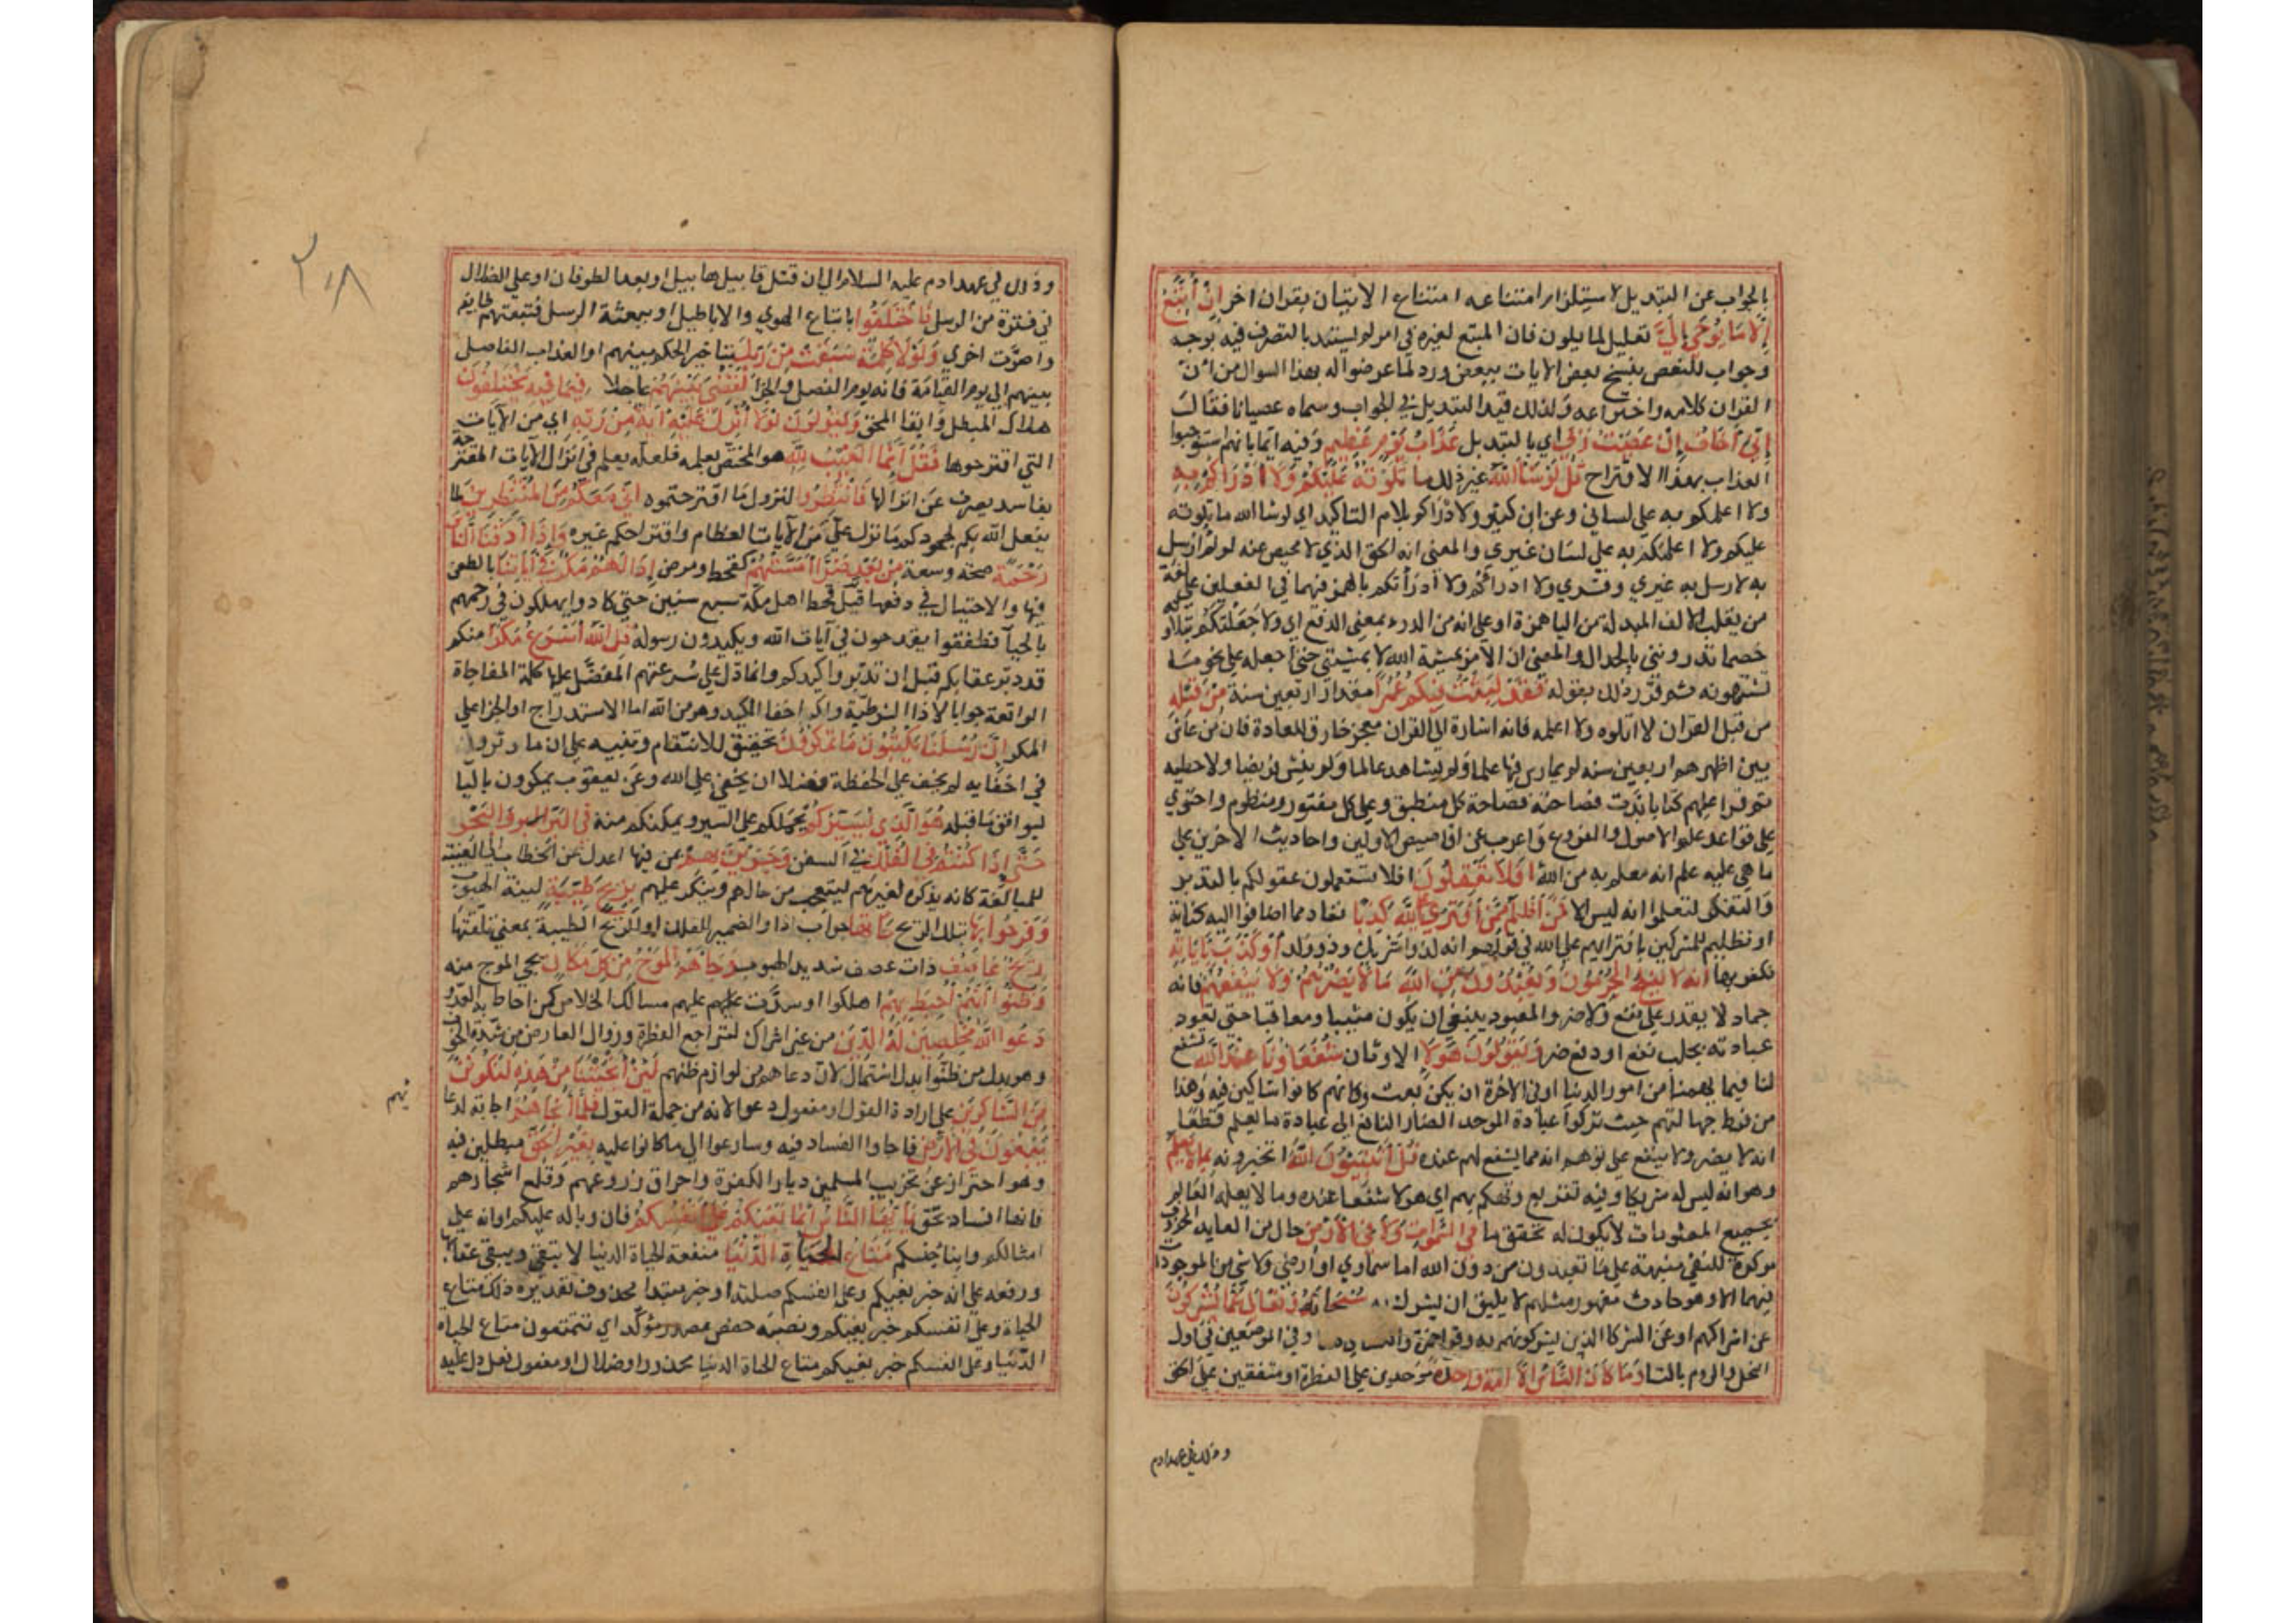 بالجواب عن التبديل لاستلزام امتناعه امتناع الاتيان بقران اخر إِنْ أَتَّبِعُ
إِلَّا مَا يُوحَى إِلَيَّ تعليل لما يكون فان المتبع لغيره في امر لم يستبد بالتصرف فيه بوجه
وجواب للنقض بنسخ بعض الايات ببعض ورد لما عرضوا له بهذا السوال من ان
القران كلامه واختراعه ولذلك قيد التبديل في الجواب وسماه عصيانا فقال
إِنِّي أَخَافُ إِنْ عَصَيْتُ رَبِّي اي بالتبديل عَذَابَ يَوْمٍ عَظِيمٍ وفيه ايما بانهم استوجبوا
العذاب بهذا الاقتراح قُلْ لَوْ شَاءَ اللَّهُ غير ذلك ما تَلَوْتُهُ عَلَيْكُمْ وَلَا أَدْرَاكُمْ بِهِ
ولا اعلمكم به على لساني وعن ابن كثير ولادراكم بلام التاكيد اي لو شا الله ما تلوته
عليكم ولا اعلمكم به على لسان غيري والمعنى انه الحق الذي لا محيص عنه لو لم ارسل
به لارسل به غيري وقري ولا ادراكم ولا ادرأتكم بالهمز فيهما في الفعلين على لغة
من يقلب الالف المبدلة من اليا همزة او على انه من الدرء بمعنى الدفع اي ولا جعلتكم بتلاوته
خصما تدرونني بالجدال والمعنى ان الامر بمشية الله لا بمشيتي حتى اجعله على نحو ما
تشتهونه ثم قرر ذلك بقوله فَقَدْ لَبِثْتُ فِيكُمْ عُمُرًا مقدار اربعين سنة مِنْ قَبْلِهِ
من قبل القران لا اتلوه ولا اعلمه فانه اشارة الى القران معجز خارق للعادة فان من عاش
بين اظهرهم اربعين سنه لم يمارس فيها علما ولم يشاهد عالما ولم ينش قريضا ولا خطبه
ثم قرا عليهم كتابا بذت فصاحته فصاحة كل منطيق وعلى كل منثور ومنظوم واحتوى
على قواعد علم الاصول والفروع واعرب عن اقاصيص الاولين واحاديث الاخرين على
ما هي عليه علم انه معلم به من الله أَفَلَا تَعْقِلُونَ افلا تستعملون عقولكم بالتدبر
والتفكر لتعلموا انه ليس الا فَمَنْ أَظْلَمُ مِمَّنِ افْتَرَى عَلَى اللَّهِ كَذِبًا تفاد مما اضافوا اليه كناية
او تظليم للمشركين بافترايهم على الله في قولهم انه لذو شريك وذو ولد أَوْ كَذَّبَ بِآيَاتِهِ
فكفر بها إِنَّهُ لَا يُفْلِحُ الْمُجْرِمُونَ وَيَعْبُدُونَ مِنْ دُونِ اللَّهِ مَا لَا يَضُرُّهُمْ وَلَا يَنْفَعُهُمْ فانه
جماد لا يقدر على نفع ولا ضر والمعبود ينبغي ان يكون مثيبا ومعاقبا حتى تعود
عبادته بجلب نفع او دفع ضر وَيَقُولُونَ هَؤُلَاءِ الاوثان شُفَعَاؤُنَا عِنْدَ اللَّهِ تشفع
لنا فيما يهمنا من امور الدنيا او في الاخرة ان يكن بعث وكانهم كانوا شاكين فيه وهذا
من فرط جهالتهم حيث تركوا عبادة الموجد الضار النافع الى عبادة ما يعلم قطعا
انه لا يضر ولا ينفع على توهم انه مما يشفع لهم عنده قُلْ أَتُنَبِّئُونَ اللَّهَ اتخبرونه بِمَا لَا يَعْلَمُ
وهو انه ليس له شريكا وفيه تقريع وتهكم بهم اي هولا شفعا عنده وما لا يعلمه العالم
بجميع المعلومات لا يكون له تحقق ما فِي السَّمَاوَاتِ وَلَا فِي الْأَرْضِ حال من العايد المحذوف
موكدة للنفي منبهة على ما تعبدون من دون الله اما سماوي او ارضي ولا شي من الموجودات
فيهما الا وهو حادث مقهور مثلهم لا يليق ان يشرك به سُبْحَانَهُ وَتَعَالَى عَمَّا يُشْرِكُونَ
عن اشراكهم او عن الشركا الذين يشركونهم به وقرا حمزة والكساي هنا وفي الموضعين في اول
النحل والروم بالتا وَمَا كَانَ النَّاسُ إِلَّا أُمَّةً وَاحِدَةً موحدين على الفطرة او متفقين على الحق
وذلك في عهد ادم
٢١٨
وذلك في عهد ادم عليه السلام الى ان قتل قابيل هابيل او بعد الطوفان او على الضلال
في فترة من الرسل فَاخْتَلَفُوا باتباع الهوى والاباطيل او ببعثة الرسل فتبعتهم طايفة
واصرّت اخرى وَلَوْلَا كَلِمَةٌ سَبَقَتْ مِنْ رَبِّكَ بتاخير الحكم بينهم او العذاب الفاصل
بينهم الى يوم القيامة فانه يوم الفصل والجزا لَقُضِيَ بَيْنَهُمْ عاجلا فِيمَا فِيهِ يَخْتَلِفُونَ
هلاك المبطل وابقا المحق وَيَقُولُونَ لَوْلَا أُنْزِلَ عَلَيْهِ آيَةٌ مِنْ رَبِّهِ اي من الآيات
التي اقترحوها فَقُلْ إِنَّمَا الْغَيْبُ لِلَّهِ هو المختص بعلمه فلعله يعلم في انزال الآيات المقترحة
مفاسد يصرف عن انزالها فَانْتَظِرُوا لنزول ما اقترحتموه إِنِّي مَعَكُمْ مِنَ الْمُنْتَظِرِينَ لما
يفعل الله بكم لجحودكم ما نزل عليّ من الآيات العظام واقتراحكم غيره وَإِذَا أَذَقْنَا النَّاسَ
رَحْمَةً صحة وسعة مِنْ بَعْدِ ضَرَّاءَ مَسَّتْهُمْ كقحط ومرض إِذَا لَهُمْ مَكْرٌ فِي آيَاتِنَا بالطعن
فيها والاحتيال في دفعها قيل قحط اهل مكة سبع سنين حتى كادوا يهلكون فرحمهم
بالحيا فطفقوا يقدحون في آيات الله ويكيدون رسوله قُلِ اللَّهُ أَسْرَعُ مَكْرًا منكم
قد دبر عقابكم قبل ان تدبروا كيدكم وانما دل على سرعتهم المفضل عليها كلمة المفاجاة
الواقعة جوابا لاذا الشرطية والمكر اخفا الكيد وهو من الله اما الاستدراج او الجزا على
المكر إِنَّ رُسُلَنَا يَكْتُبُونَ مَا تَمْكُرُونَ تحقيق للانتقام وتنبيه على ان ما دبروا
في اخفايه لم يخف على الحفظة فضلا ان يخفى على الله وعن يعقوب يمكرون باليا
ليوافق ما قبله هُوَ الَّذِي يُسَيِّرُكُمْ يحملكم على السير ويمكنكم منه فِي الْبَرِّ وَالْبَحْرِ
حَتَّى إِذَا كُنْتُمْ فِي الْفُلْكِ في السفن وَجَرَيْنَ بِهِمْ بمن فيها عدل عن الخطاب الى الغيبة
للمبالغة كانه يذكره لغيرهم ليتعجب من حالهم وينكر عليهم بِرِيحٍ طَيِّبَةٍ لينة الهبوب
وَفَرِحُوا بِهَا بتلك الريح جَاءَتْهَا جواب اذا والضمير للفلك او الريح الطيبة بمعنى تلقتها
رِيحٌ عَاصِفٌ ذات عصف شديد الهبوب وَجَاءَهُمُ الْمَوْجُ مِنْ كُلِّ مَكَانٍ يجي الموج منه
وَظَنُّوا أَنَّهُمْ أُحِيطَ بِهِمْ اهلكوا او سدّت عليهم عليهم مسالك الخلاص كمن احاط به العدو
دَعَوُا اللَّهَ مُخْلِصِينَ لَهُ الدِّينَ من غير اشراك لتراجع الفطرة وزوال المعارض من شدة الخوف
وهو بدل من ظنوا بدل اشتمال لان دعاهم من لوازم ظنهم لَئِنْ أَنْجَيْتَنَا مِنْ هَذِهِ لَنَكُونَنَّ
مِنَ الشَّاكِرِينَ على ارادة القول او مفعول دعوا لانه من جملة القول فَلَمَّا أَنْجَاهُمْ اجابة لدعا
ئهم
يَبْغُونَ فِي الْأَرْضِ فاجاوا الفساد فيه وسارعوا الى ما كانوا عليه بِغَيْرِ الْحَقِّ مبطلين فيه
وهو احتراز عن تخريب المسلمين ديار الكفرة واحراق زروعهم وقلع اشجارهم
فانها افساد بحق يَا أَيُّهَا النَّاسُ إِنَّمَا بَغْيُكُمْ عَلَى أَنْفُسِكُمْ فان وباله عليكم او انه على
امثالكم وابنا جنسكم مَتَاعَ الْحَيَاةِ الدُّنْيَا منفعة الحياة الدنيا لا تبقى ويبقى عقابها
ورفعه على انه خبر بغيكم وعلى انفسكم صلته او خبر مبتدا محذوف تقديره ذلك متاع
الحياة وعلى انفسكم خبر بغيكم ونصبه حفص مصدر مؤكد اي تتمتعون متاع الحياه
الدنيا وعلى انفسكم خبر بغيكم متاع الحياة الدنيا محذور او ضلال او مفعول فعل دل عليه